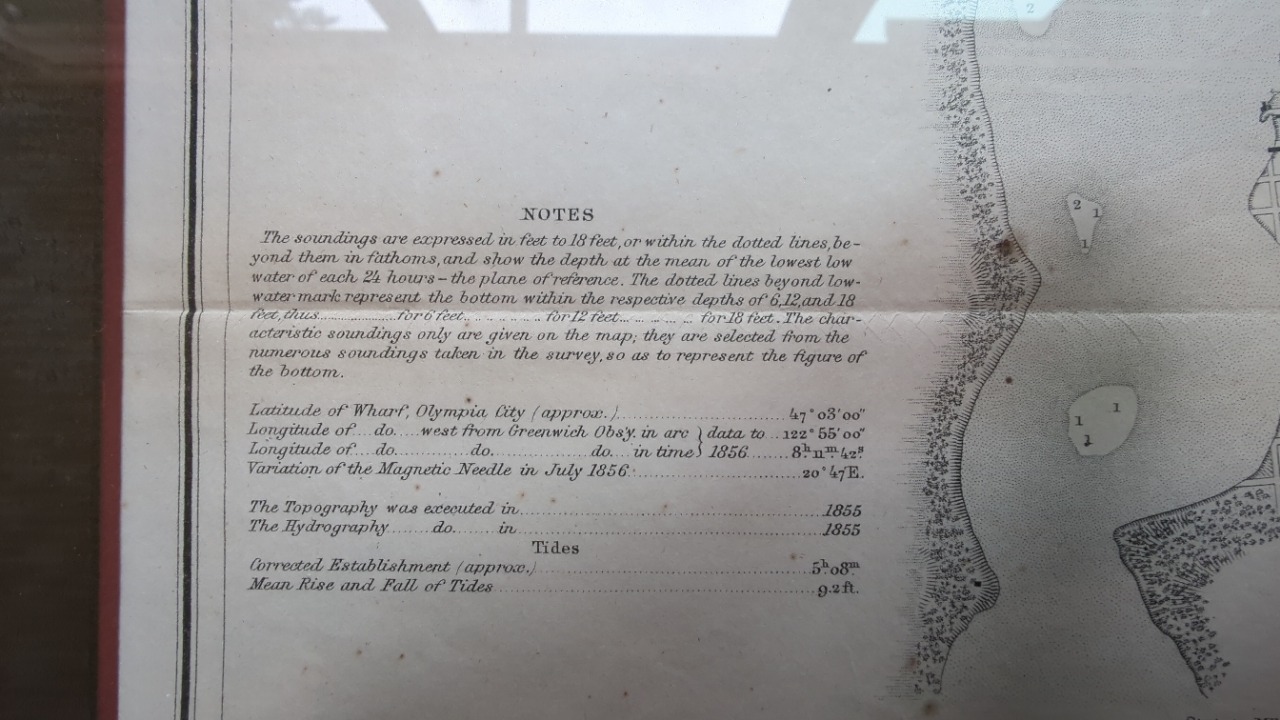 2
NOTES
The soundings are expressed in feet to 18 feet, or within the dotted lines, be-
yond them in fathoms, and show the depth at the mean of the lowest low
water of each 24 hours – the plane of reference. The dotted lines beyond low-
water mark represent the bottom within the respective depths of 6, 12, and 18
feet, thus..................for 6 feet... .. .. .. ..for 12 feet... ... ... ... for 18 feet. The char-
acteristic soundings only are given on the map; they are selected from the
numerous soundings taken in the survey, so as to represent the figure of
the bottom.
Latitude of Wharf, Olympia City (approx.)..............................47° 03' 00"
Longitude of....do.....west from Greenwich Obs'y. in arc } data to...122° 55' 00"
Longitude of....do..................do........................do....in time } 1856.........8h 11m 42s
Variation of the Magnetic Needle in July 1856..............................20° 47' E.
The Topography was executed in..............................1855
The Hydrography........do.........in..............................1855
Tides
Corrected Establishment (approx.)..............................5h 08m
Mean Rise and Fall of Tides..............................9.2 ft.
2 1
1
1
1
1